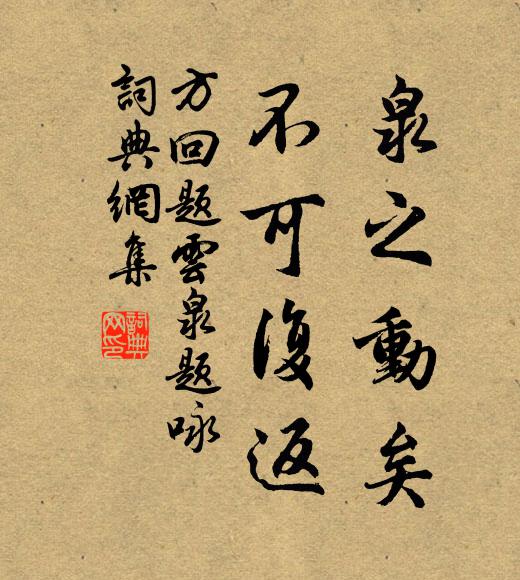 泉之動矣
不可復返
方回題雲泉題咏
詞典網集
詞典
网印